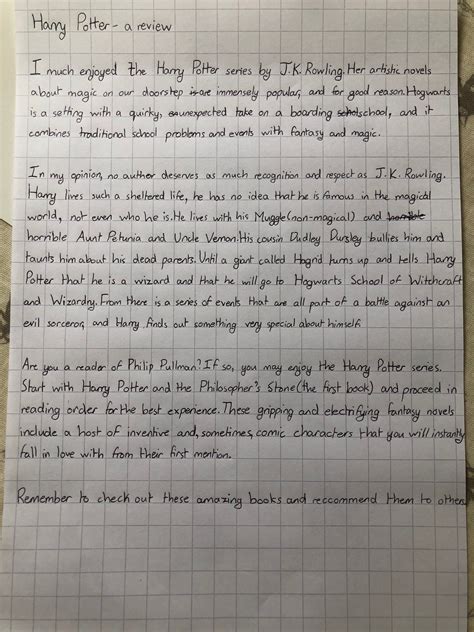 Harry Potter - a review
I much enjoyed the Harry Potter series by J.K. Rowling. Her artistic novels
about magic on our doorstep are immensely popular, and for good reason. Hogwarts
is a setting with a quirky, unexpected take on a boarding school, and it
combines traditional school problems and events with fantasy and magic.
In my opinion, no author deserves as much recognition and respect as J.K. Rowling.
Harry lives such a sheltered life, he has no idea that he is famous in the magical
world, not even who he is. He lives with his Muggle (non-magical) and horrible
horrible Aunt Petunia and Uncle Vernon. His cousin Dudley Dursley bullies him and
taunts him about his dead parents. Until a giant called Hagrid turns up and tells Harry
Potter that he is a wizard and that he will go to Hogwarts School of Witchcraft
and Wizardry. From there is a series of events that are all part of a battle against an
evil sorceror, and Harry finds out something very special about himself.
Are you a reader of Philip Pullman? If so, you may enjoy the Harry Potter series.
Start with Harry Potter and the Philosopher's Stone (the first book) and proceed in
reading order for the best experience. These gripping and electrifying fantasy novels
include a host of inventive and, sometimes, comic characters that you will instantly
fall in love with from their first mention.
Remember to check out these amazing books and reccommend them to others